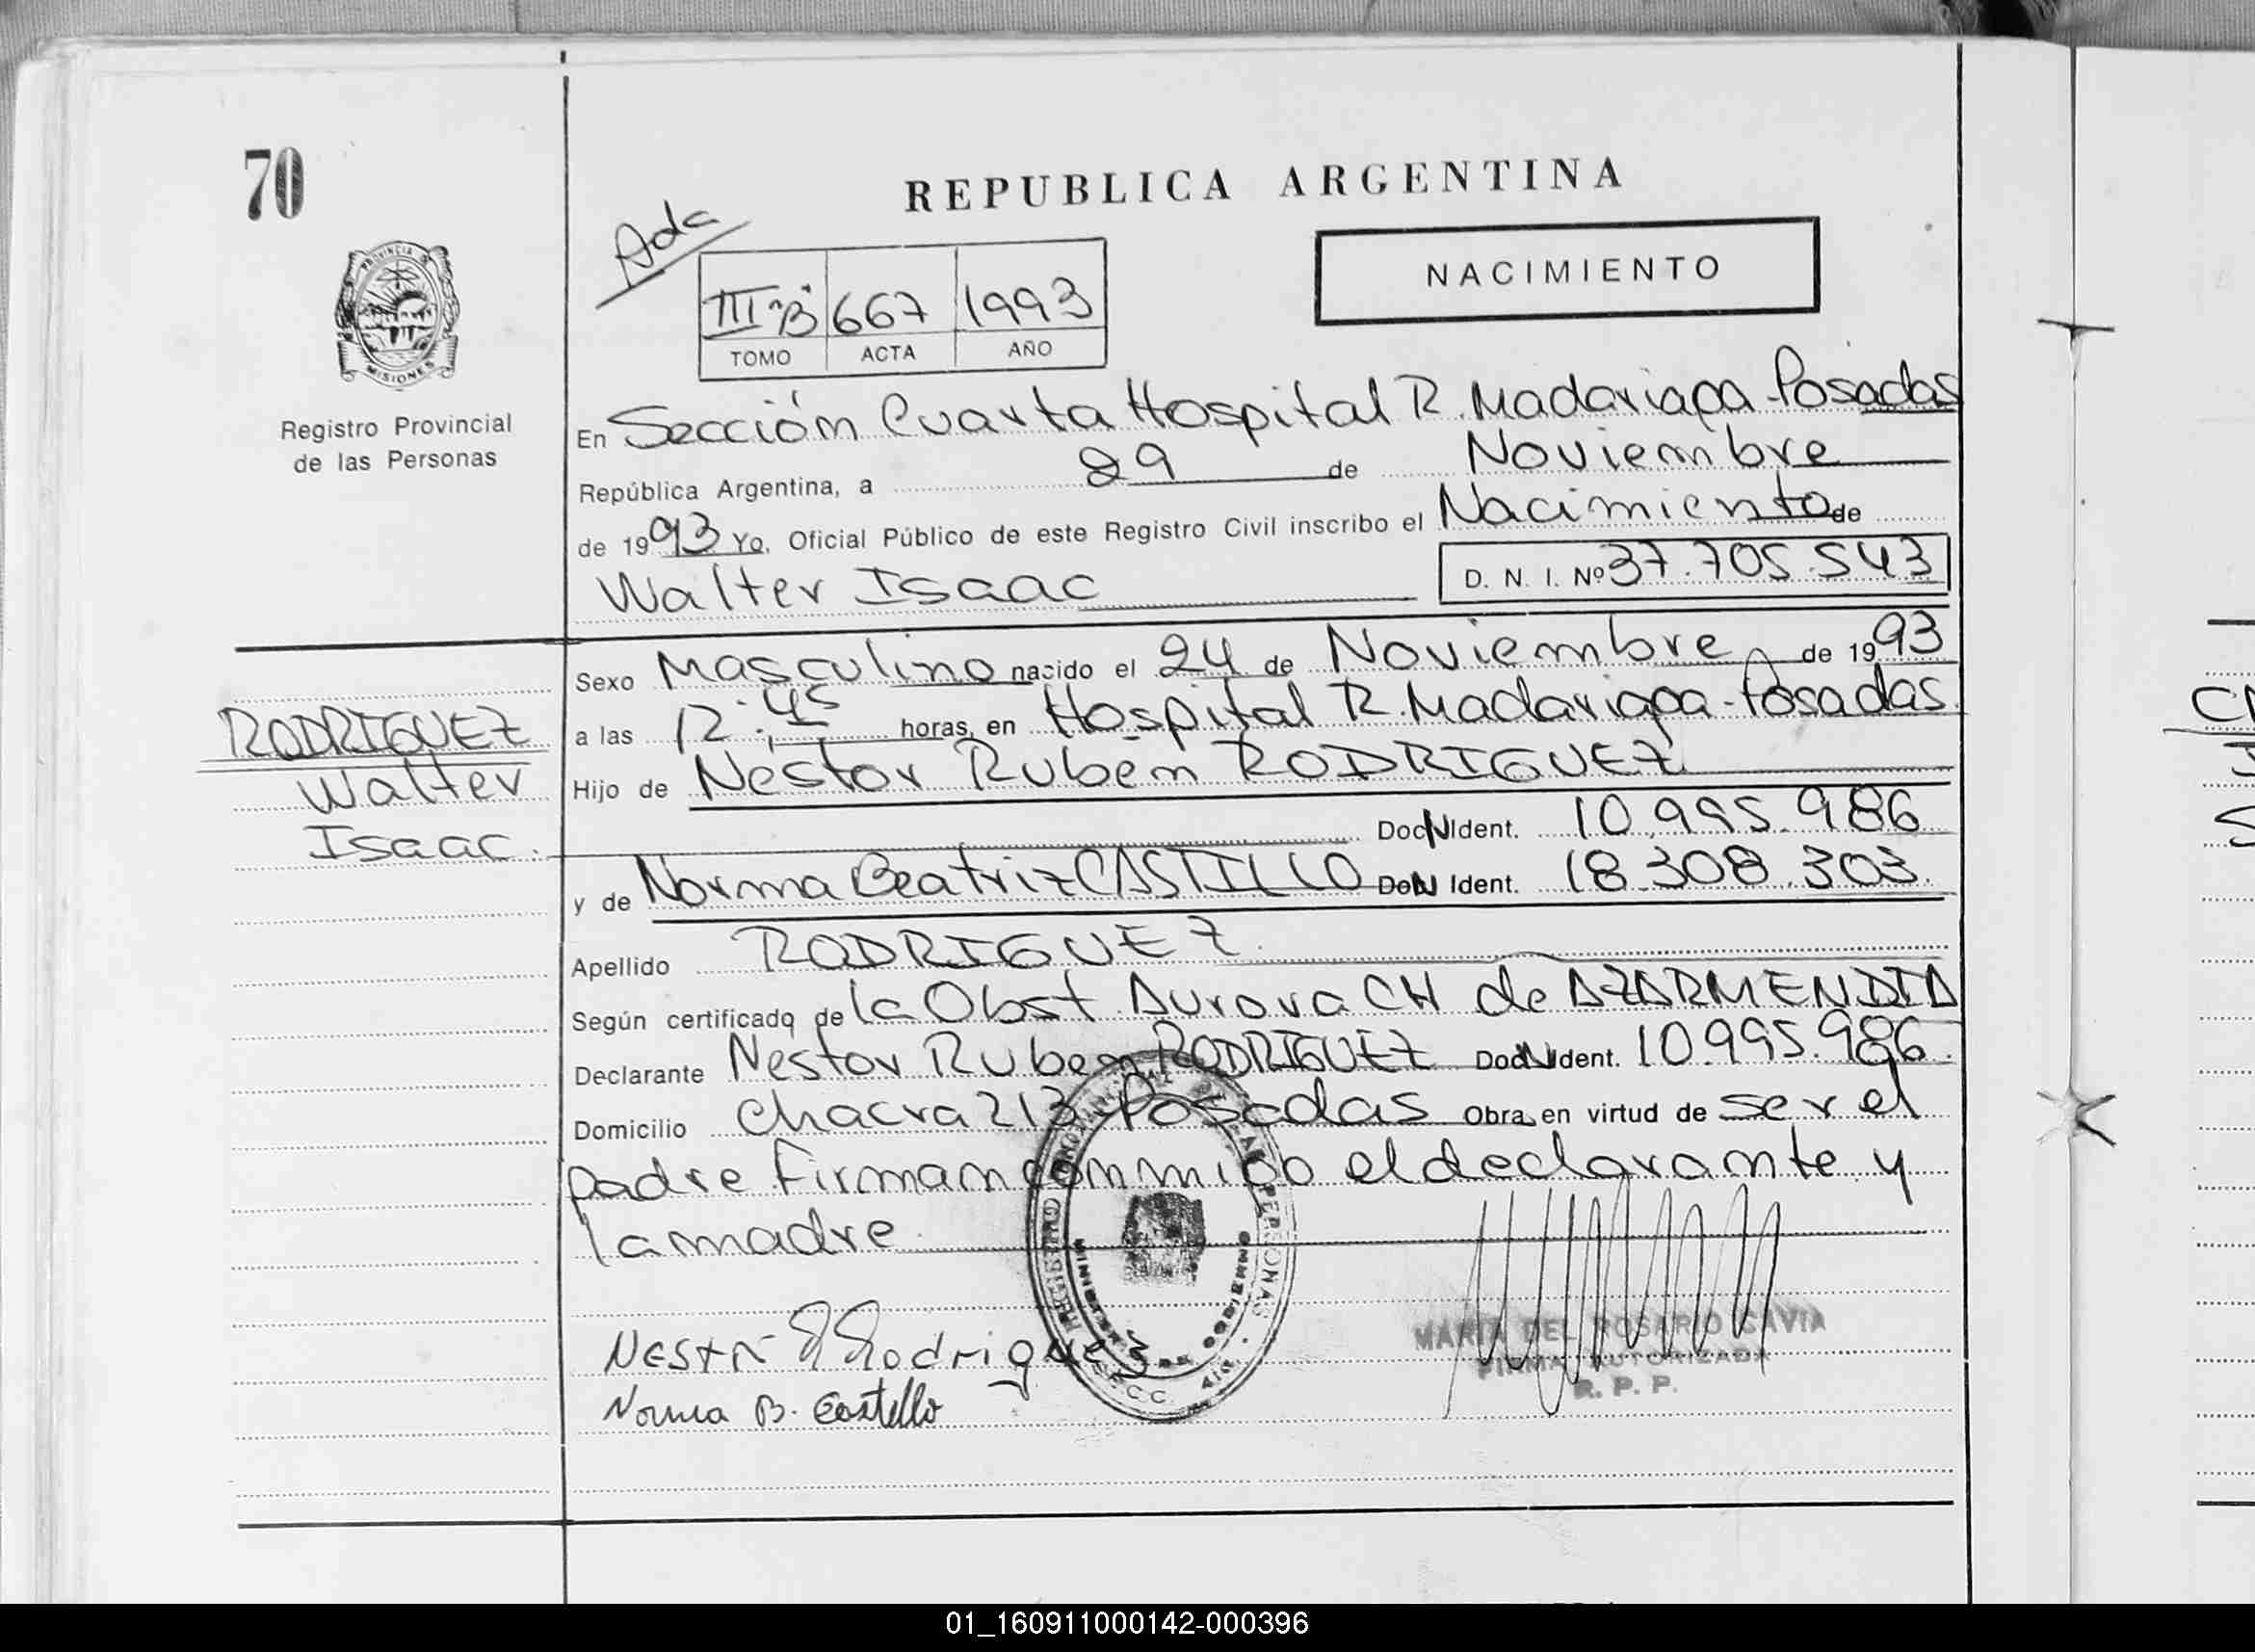 70
REPUBLICA ARGENTINA
Ada
NACIMIENTO
III "B" 667 1993
TOMO ACTA AÑO
PROVINCIA DE MISIONES
Registro Provincial
de las Personas
En Sección Cuarta Hospital R. Madariaga - Posadas
República Argentina, a 29 de Noviembre
de 1993 Yo, Oficial Público de este Registro Civil inscribo el Nacimiento de
Walter Isaac D. N. I. Nº 37.705.543
Sexo Masculino nacido el 24 de Noviembre de 1993
a las 12:45 horas, en Hospital R. Madariaga - Posadas
Hijo de Nestor Ruben RODRIGUEZ
Doc N Ident. 10.995.986
y de Norma Beatriz CASTILLO Doc N Ident. 18.308.303
Apellido RODRIGUEZ
Según certificado de la Obst. Aurora CH de AZARMENDIA
Declarante Nestor Ruben RODRIGUEZ Doc N Ident. 10.995.986
Domicilio Chacra 213 Posadas Obra en virtud de ser el
padre Firman conmigo el declarante y
la madre
RODRIGUEZ
Walter
Isaac.
Nestor R Rodriguez
Norma B. Castillo
MARIA DEL ROSARIO CAVIA
FIRMA AUTORIZADA
R. P. P.
REGISTRO PERSONAS
MINISTERIO DE GOBIERNO
01_160911000142-000396